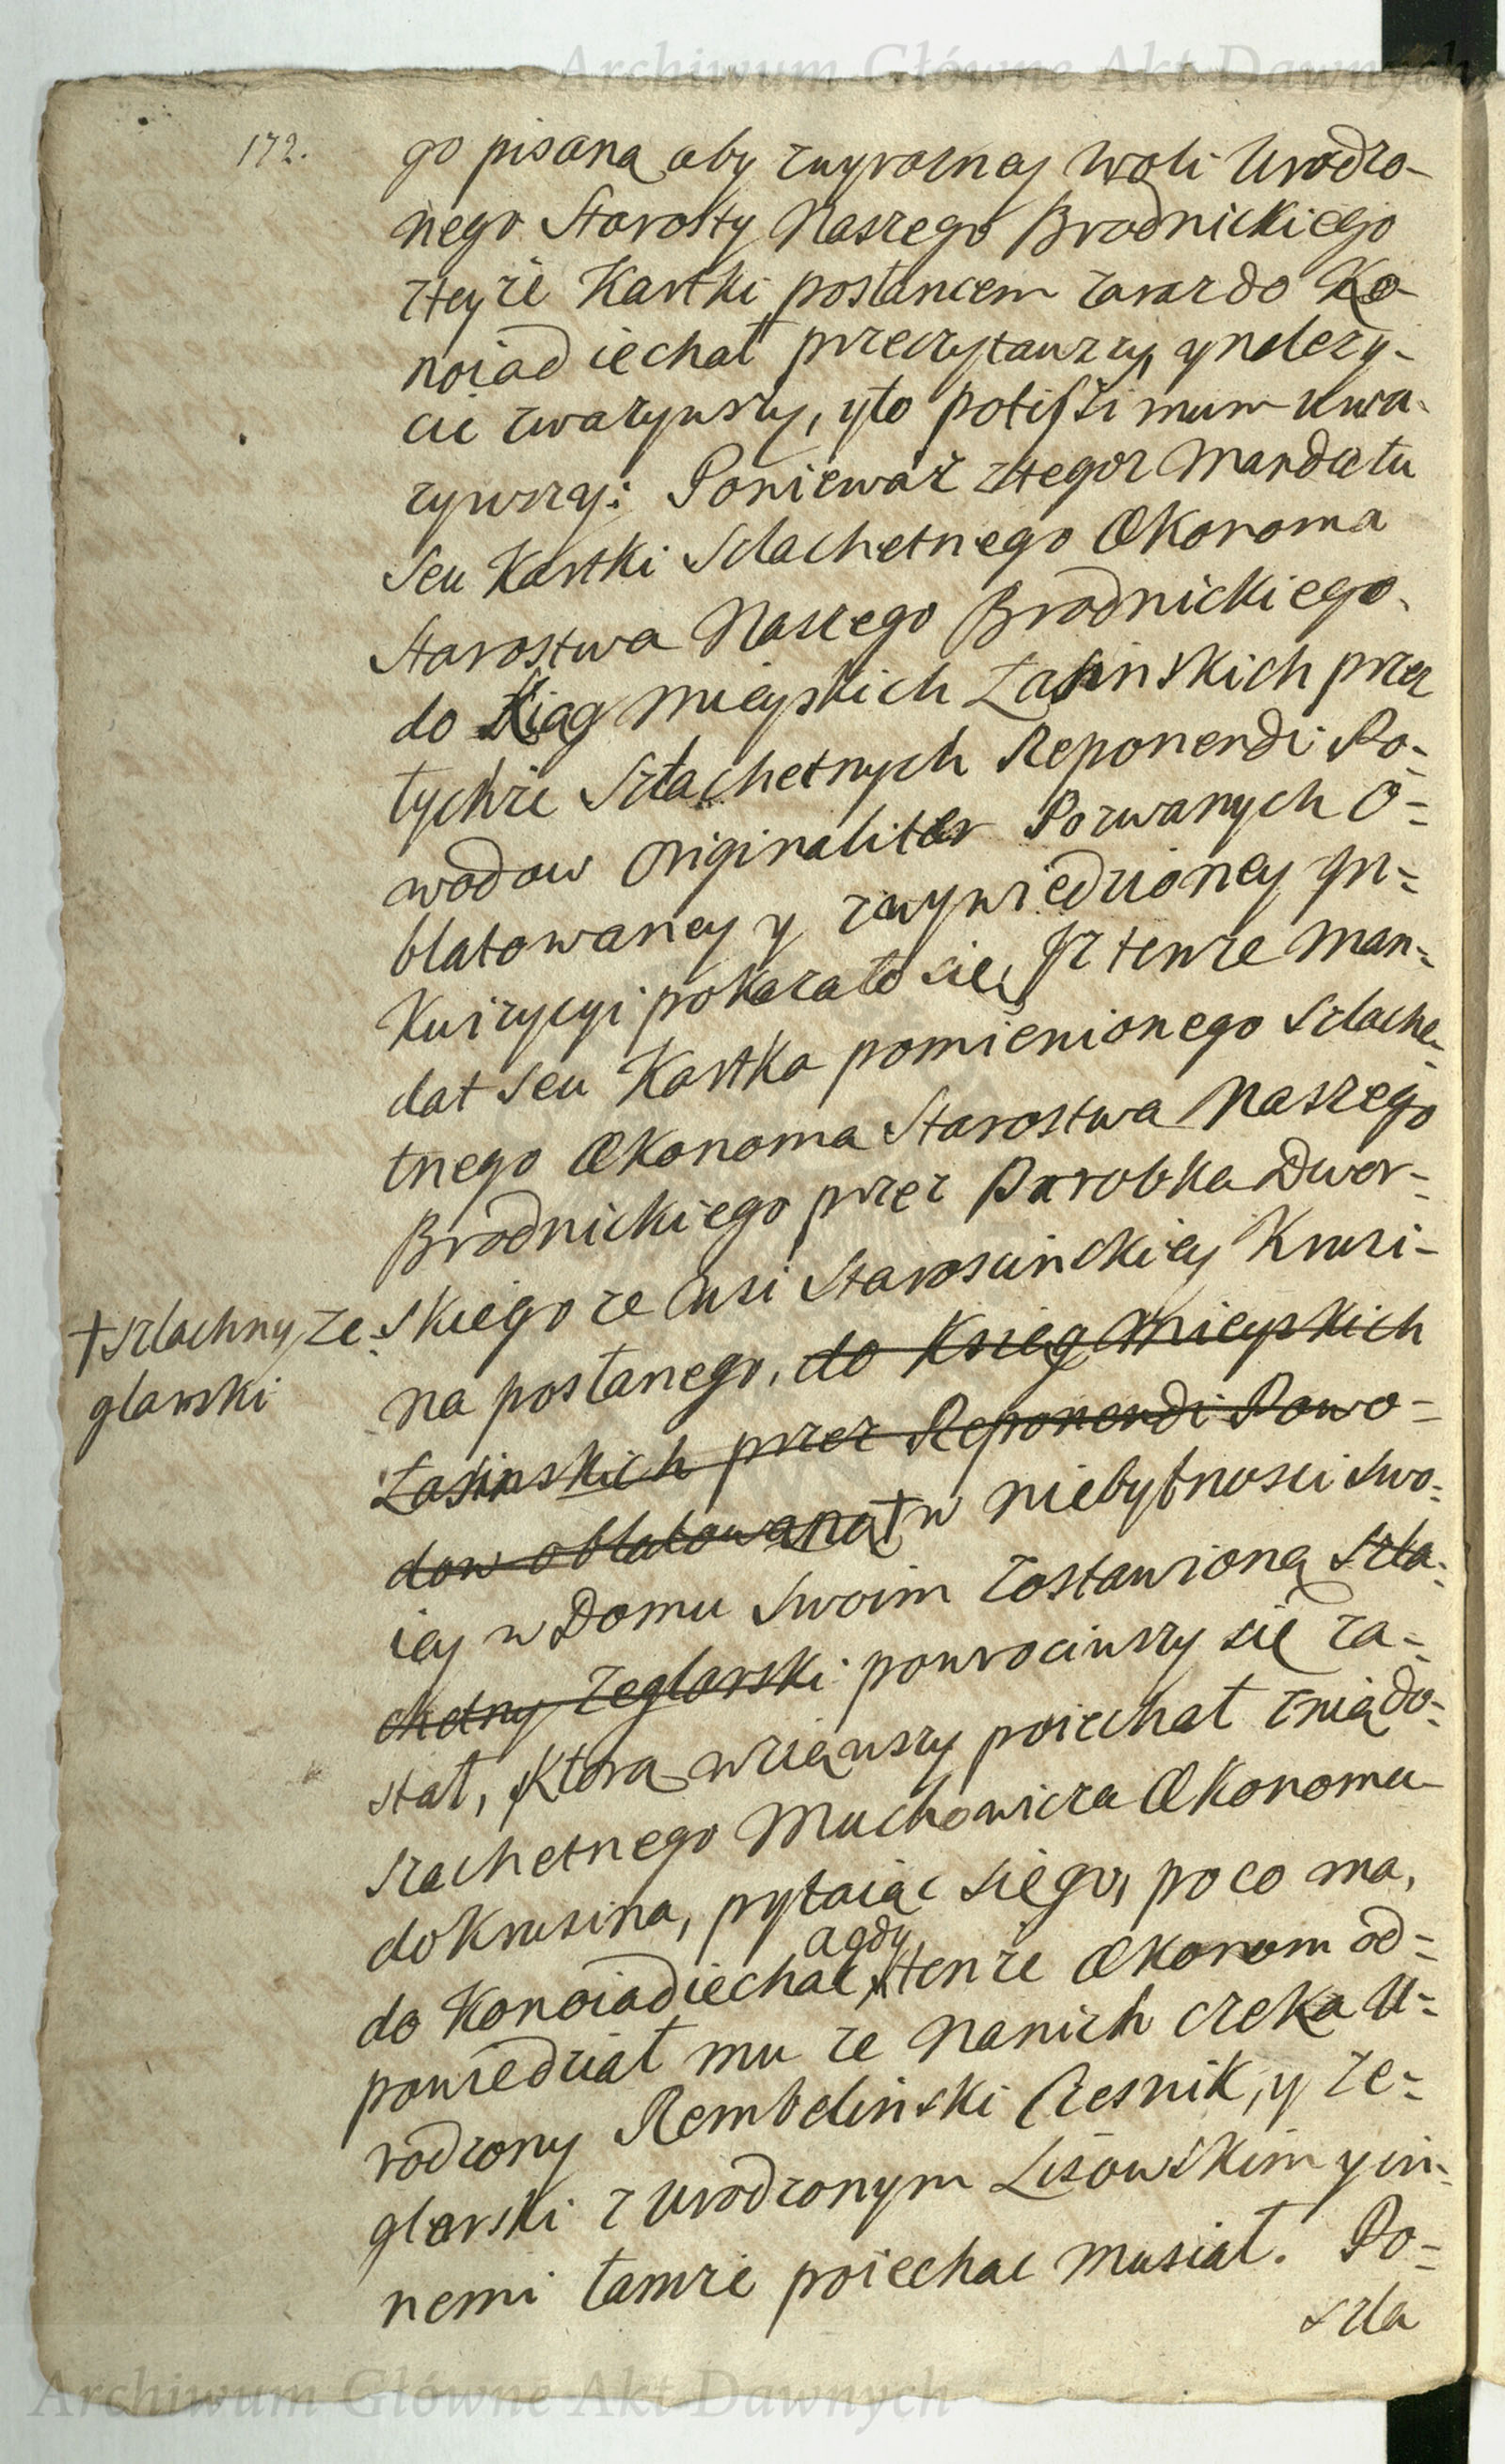 Archiwum Główne Akt Dawnych
172.
go pisana aby zwyrazney woli Urodzo-
nego Starosty Naszego Brodnickiego
zteyże Kartki postancem zaraz do Ko-
noiad iechał przeczytawszy, ynależy-
cie zwazywszy, yto potissimum uwa-
zywszy: Poniewaz ztegoz Mandatu
Seu Kartki Sclachetnego Œkonoma
Starostwa Naszego Brodnickiego
do Xiąg Mieyskich Łasinskich przez
tychże Szlachetnych Reponendi Po-
wodow originaliter Pozwanych O=
blatowaney y zwywiedzioney In=
kwizycyi pokazało się, Iz tenże Man=
dat Seu Kartka pomienionego Szlache
tnego Œkonoma Starostwa Naszego
Brodnickiego przez Parobka Dwor=
skiego ze Wsi Staroscinckiey Krusi-
na posłanego, do Ksiąg Mieyskich
Łasinskich przez Reponendi Powo=
dow oblatowana † w niebytnosci swo=
†szlachny Ze=
glarski
iey w Domu Swoim zostawioną Szla=
chetny Zeglarski powrociwszy się za=
stał, Ktora wziąwszy poiechał znią do=
szachetnego Muchowicza Œkonoma
do Krusina, pytaiąc sięgo, po co ma,
do Konoiad iechać, agdy tenże Œkonom od=
powiedział mu ze Nanich czeka U=
rodzony Rembelinski Czesnik, y Ze=
glarski z Urodzonym Lisowskim y in=
nemi tamże poiechac musiał. Po=
szla
Archiwum Główne Akt Dawnych